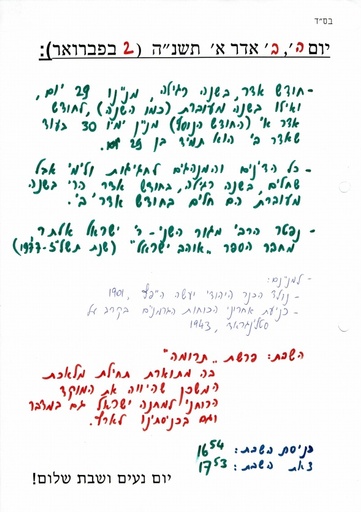 בס״ד
יום ה׳, ב׳ אדר א׳ תשנ״ה (2 בפברואר):
- חודש אדר, בשנה רגילה, מנין 29 יום,
ואילו בשנה מעוברת (כמו השנה), לחודש
אדר א׳ (החודש הנוסף) מנין ימיו 30 בעוד
שאדר ב׳ הוא תמיד בן 29 יום.
- כל הדינים והמנהגים לחגיגות ולימי אבל
שחלים, בשנה רגילה, בחודש אדר, הרי בשנה
מעוברת הם חלים בחודש אדר ב׳.
- נפטר הרבי מגור השני - ר׳ ישראל אלתר
מחבר הספר ״אוהב ישראל״ (שנת תשל״ז-1977)
- למנינם:
- נולד הכנר היהודי יעשה חפץ, 1901
- כניעת אחרוני הכוחות הגרמנים בקרב על
סטלינגראד, 1943
השבת: פרשת ״תרומה״
בה מתוארת תחילת מלאכת
המשכן שהיווה את המוקד
הרוחני למחנה ישראל גם במדבר
וגם בכניסתינו לארץ.
כניסת השבת: 16 54
צאת השבת: 17 53
יום נעים ושבת שלום!